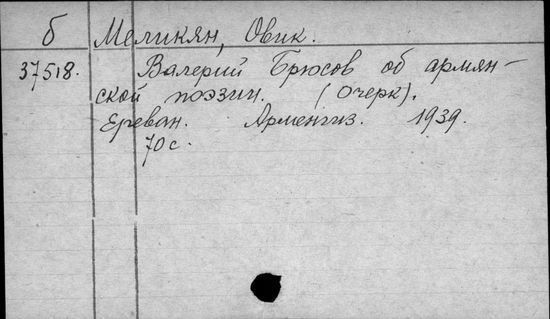 б Меликян, Овик.
37518. Валерий Брюсов об армян-
ской поэзии. (Очерк).
Ереван. Арменгиз. 1939.
70 с.